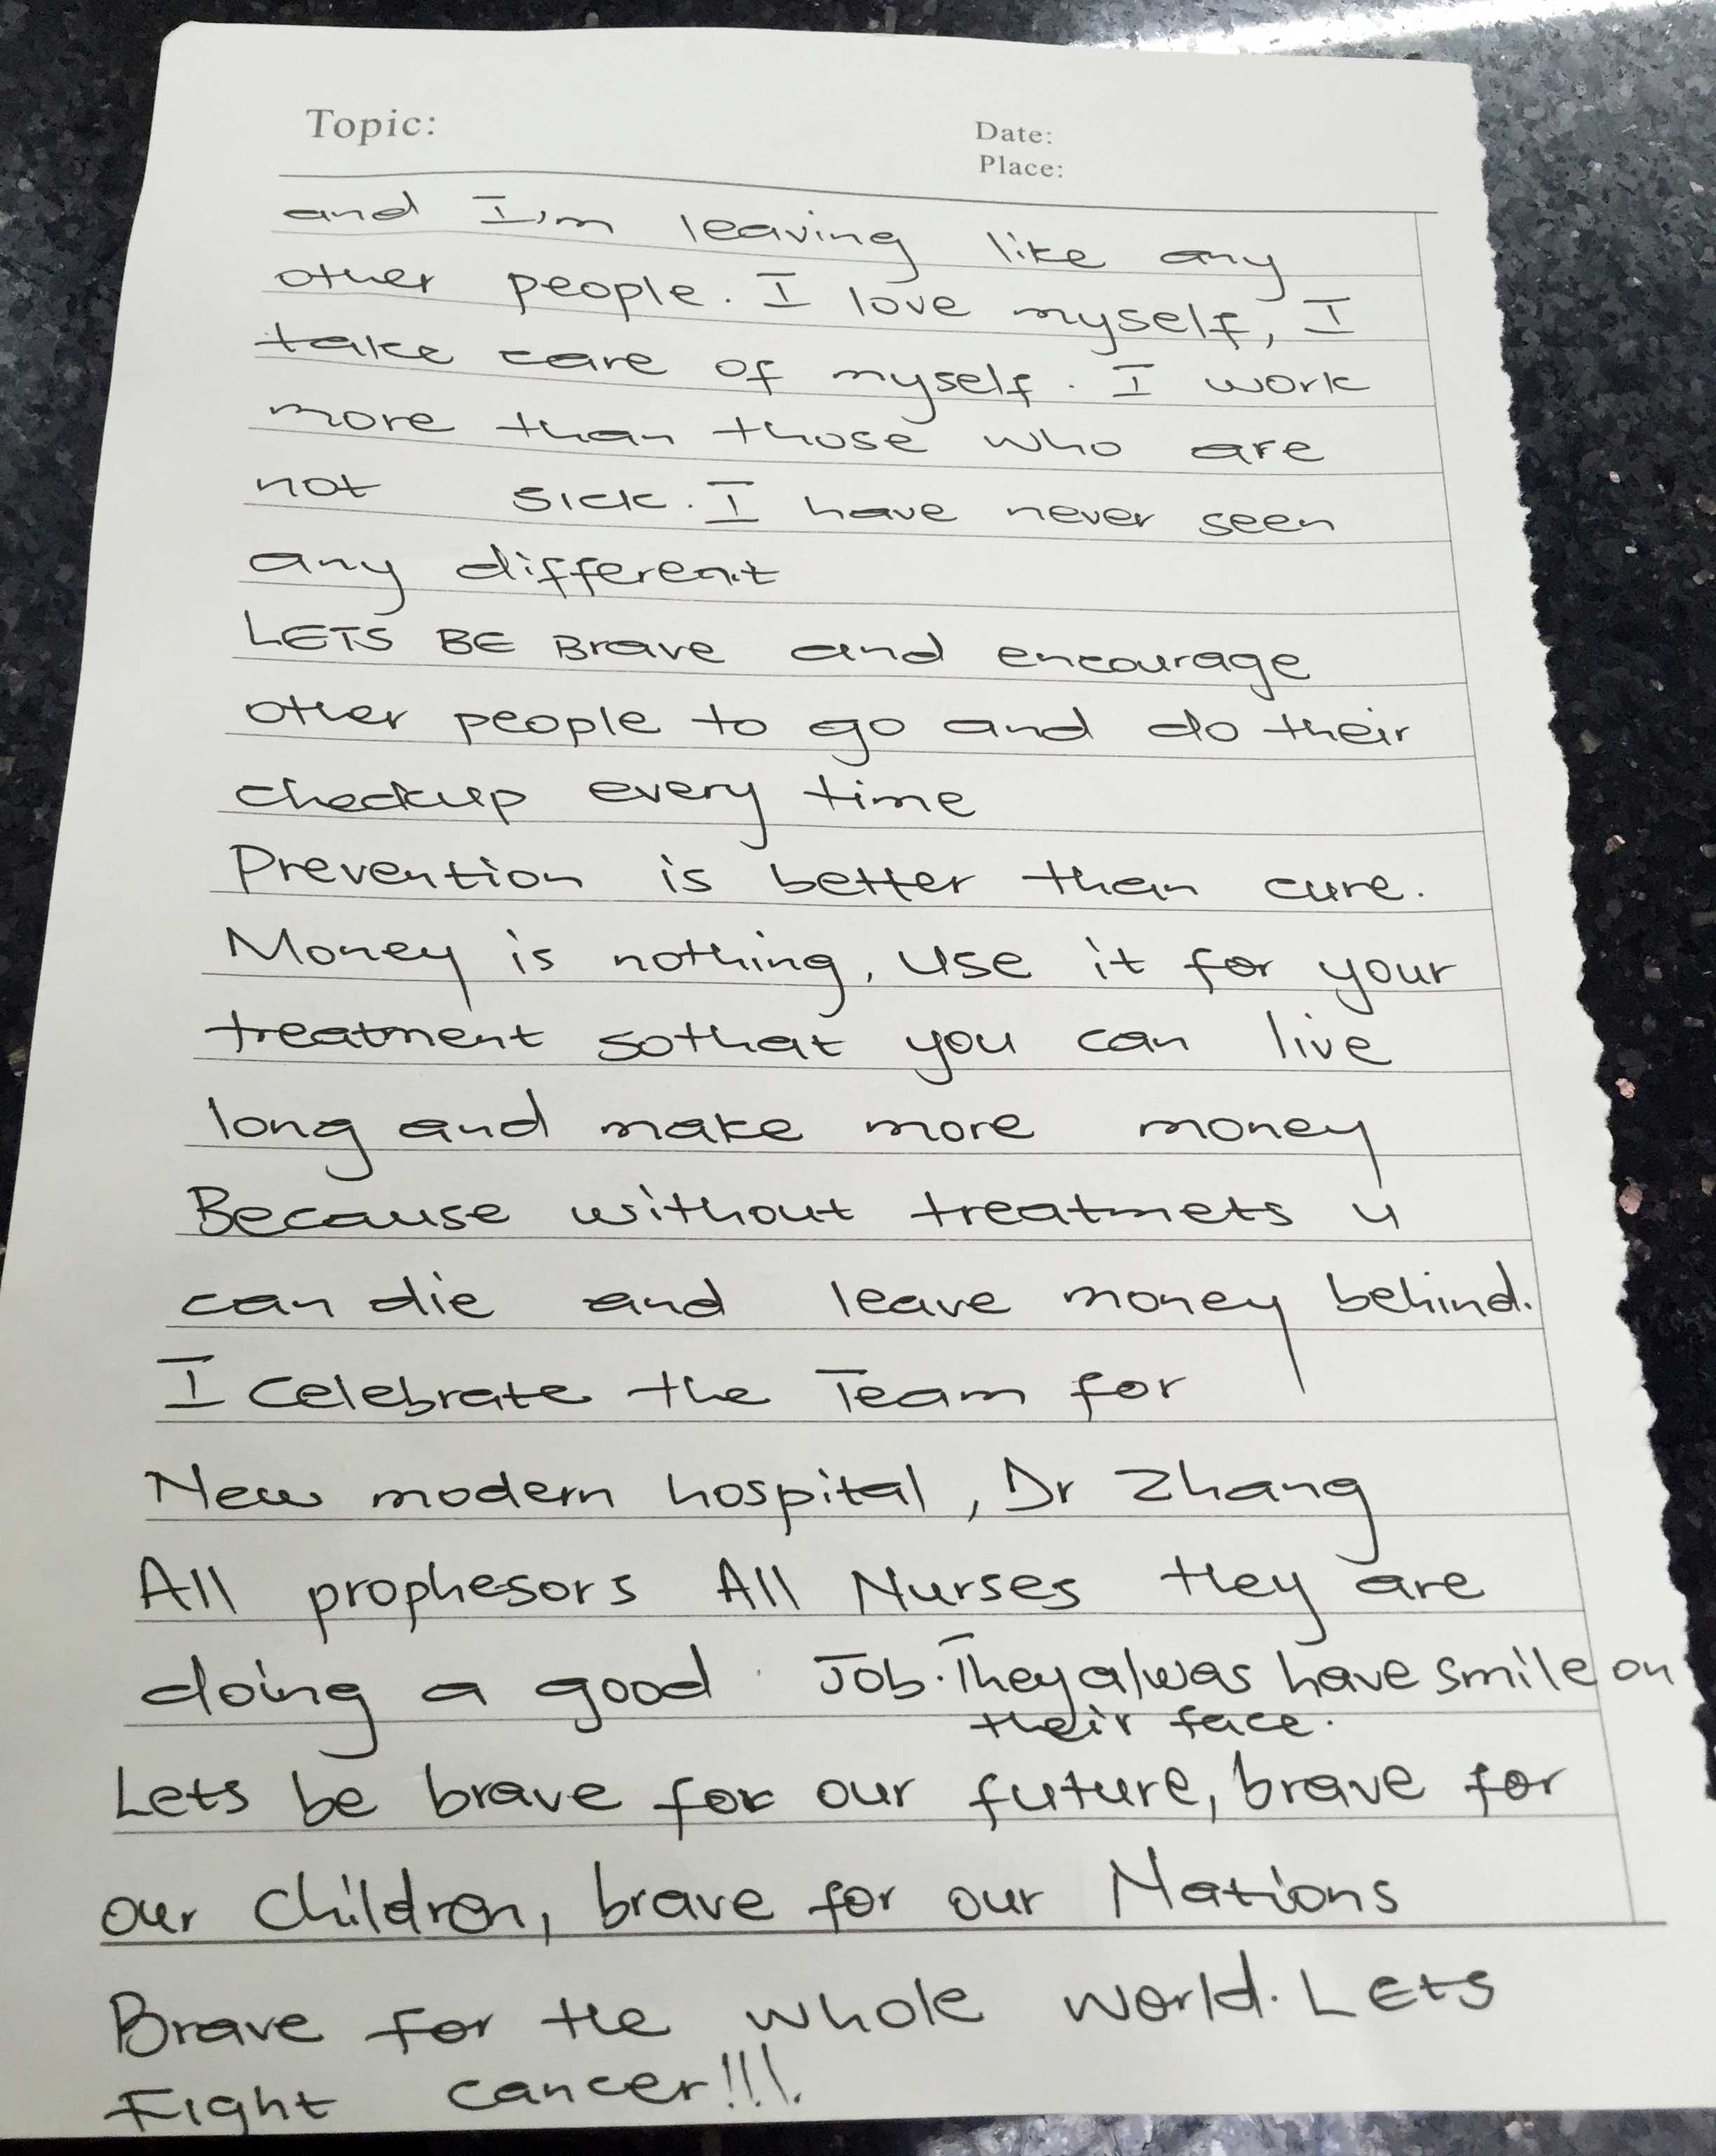 Topic:
Date:
Place:
and I'm leaving like any
other people. I love myself, I
take care of myself. I work
more than those who are
not sick. I have never seen
any different
LETS BE Brave and encourage
other people to go and do their
checkup every time
Prevention is better than cure.
Money is nothing, use it for your
treatment sothat you can live
long and make more money
Because without treatmets u
can die and leave money behind.
I celebrate the Team for
New modern hospital, Dr Zhang
All prophesors All Nurses they are
doing a good Job. They alwas have smile on
their face.
Lets be brave for our future, brave for
our children, brave for our Nations
Brave for the whole world. Lets
Fight cancer!!!.